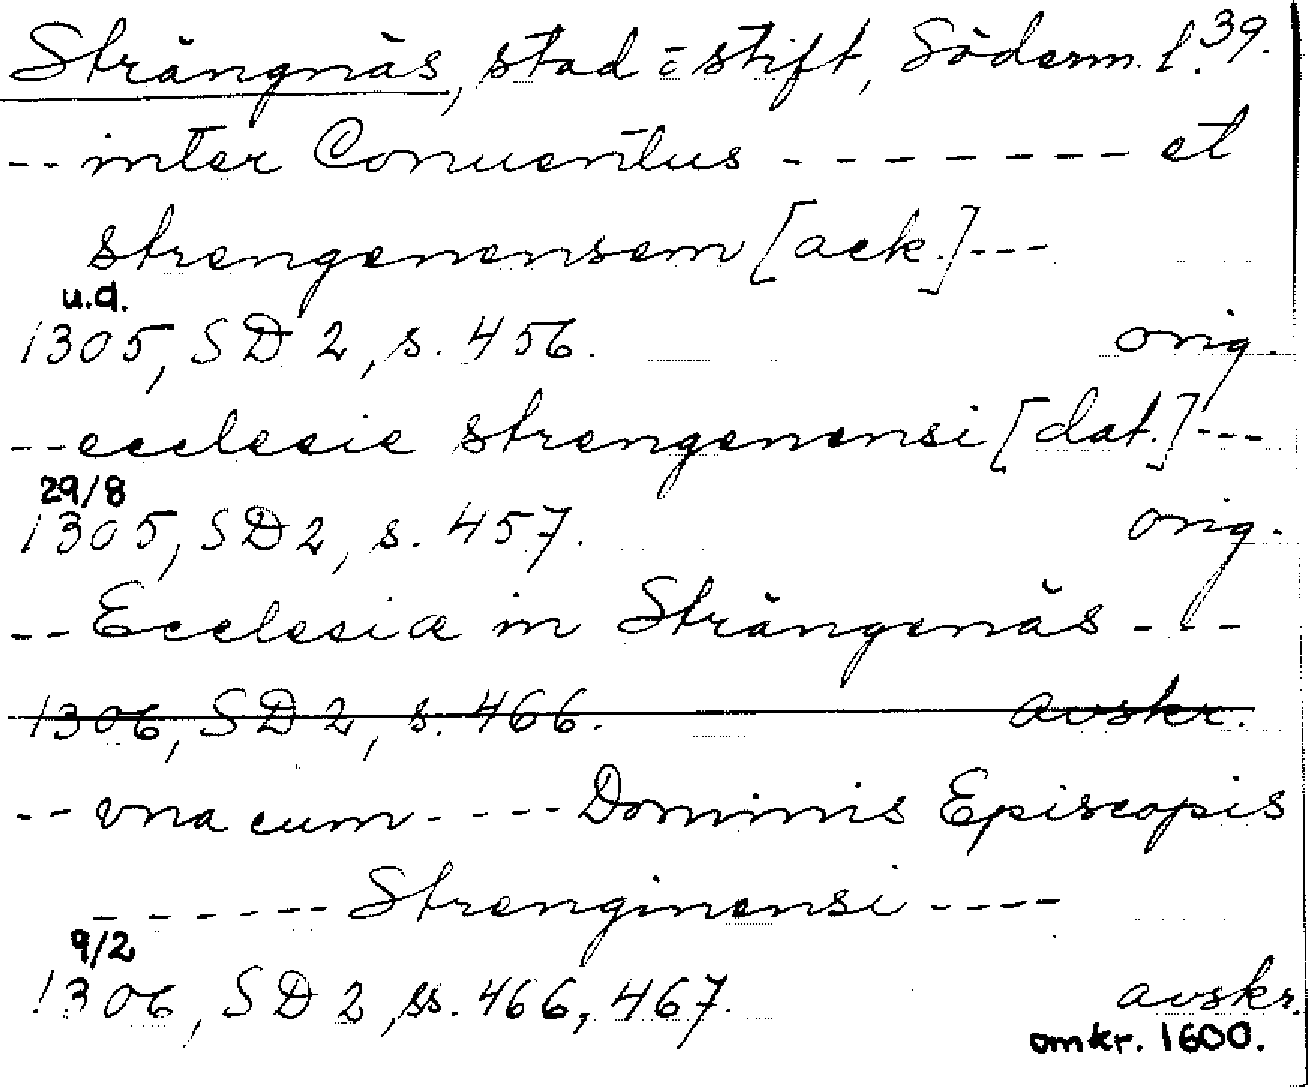 Strängnäs, stad o. stift, Söderm. l. 39.
-- inter Conuentus -------- et
strengenensem [ack.] ---
u.d.
1305, SD 2, s. 456. orig.
-- ecclesie strengenensi [dat.] ---
29/8
1305, SD 2, s. 457. orig.
-- Ecclesia in Strängenäs ---
1306, SD 2, s. 466. avskr.
-- vna cum ---- Dominis Episcopis
------ Strenginensi ----
9/2
1306, SD 2, ss. 466, 467. avskr.
omkr. 1600.